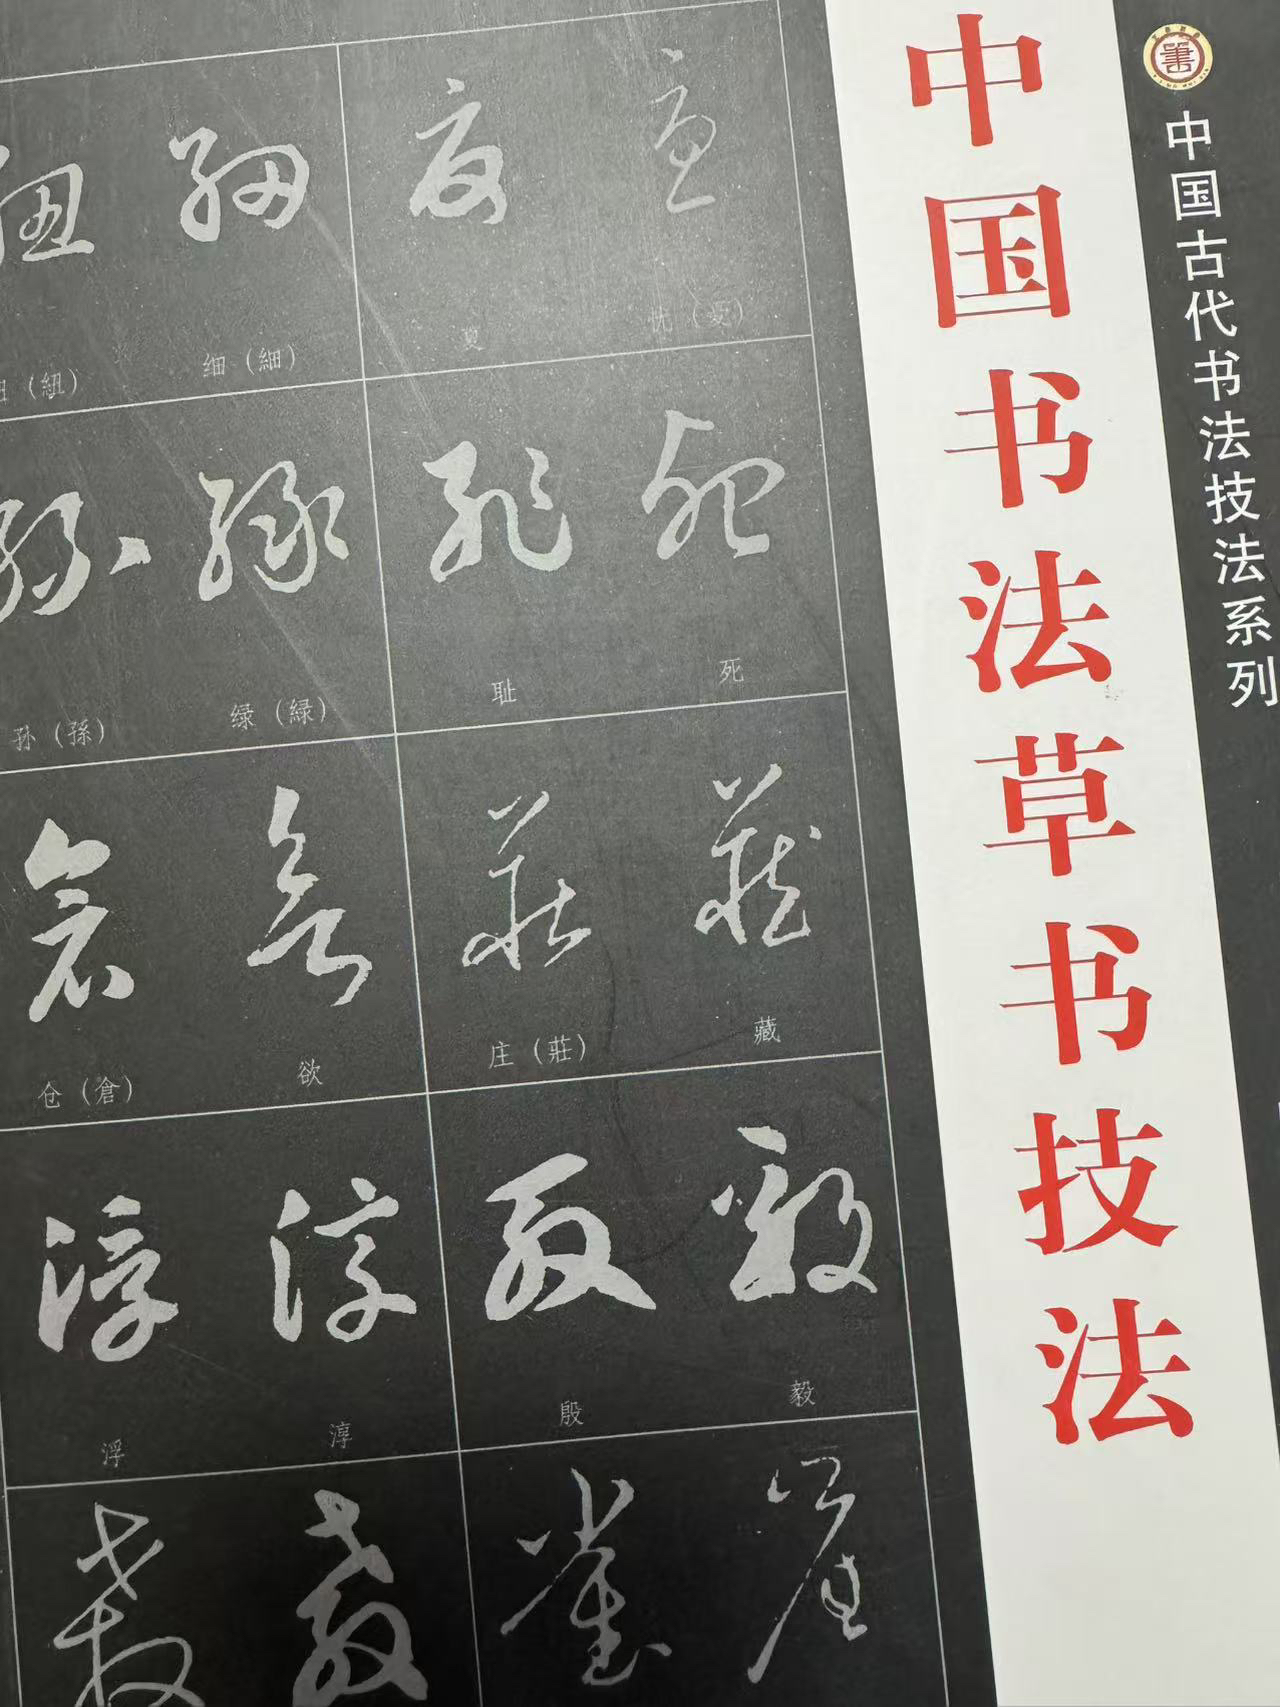 中国古代书法技法系列
中国书法草书技法
（紐） 细（細） 夏
孙（孫） 绿（緑） 耻 死
仓（倉） 欲 庄（莊） 藏
浮 淳 殷 毅